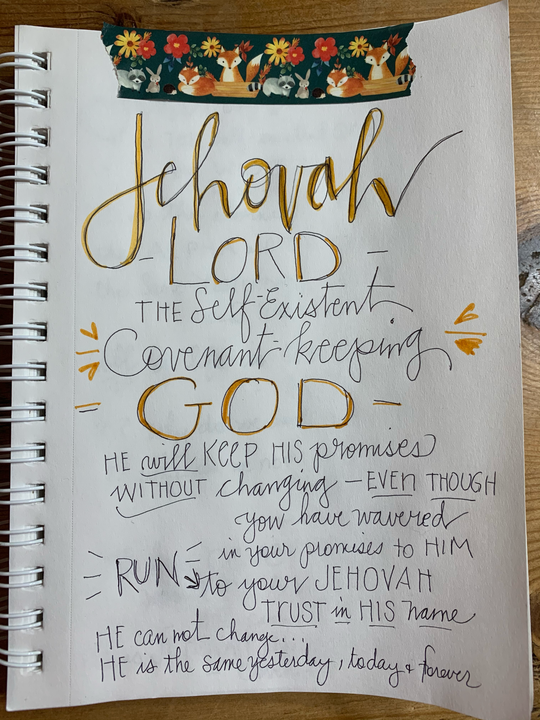 Jehovah
- LORD -
THE Self-Existent
Covenant-keeping
- GOD -
HE will KEEP HIS promises
WITHOUT changing - EVEN THOUGH
you have wavered
in your promises to HIM
RUN to your JEHOVAH
TRUST in HIS name
HE can not change...
HE is the same yesterday, today + forever